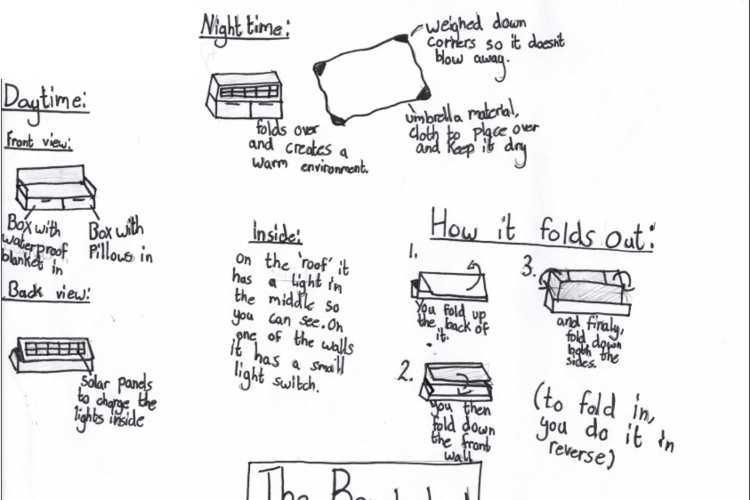 Night time:
weighed down
corners so it doesn't
blow away.
umbrella material,
cloth to place over
and keep it dry
folds over
and creates a
warm environment.
Daytime:
Front view:
Box with
waterproof
blanket in
Box with
Pillows in
Back view:
Solar panels
to charge the
lights inside
Inside:
on the 'roof' it
has a light in
the middle so
you can see. On
one of the walls
it has a small
light switch.
How it folds out:
1.
You fold up
the back of
it.
2.
you then
fold down
the front
wall
3.
and finaly,
fold down
both the
sides.
(to fold in,
you do it in
reverse)
The